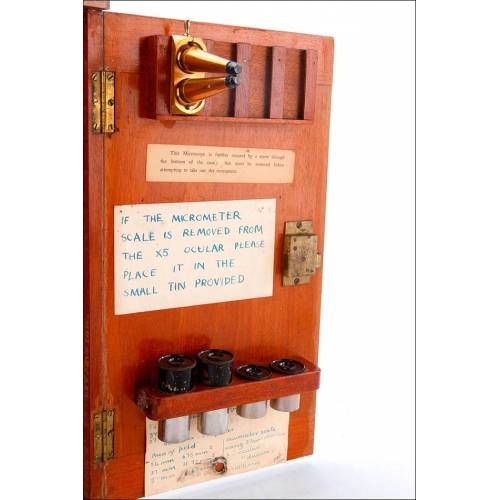 This Microscope is further secured by a screw through
the bottom of the case; this must be removed before
attempting to take out the instrument.
IF THE MICROMETER
SCALE IS REMOVED FROM
THE X5 OCULAR PLEASE
PLACE IT IN THE
SMALL TIN PROVIDED
Area of field
micrometer scale